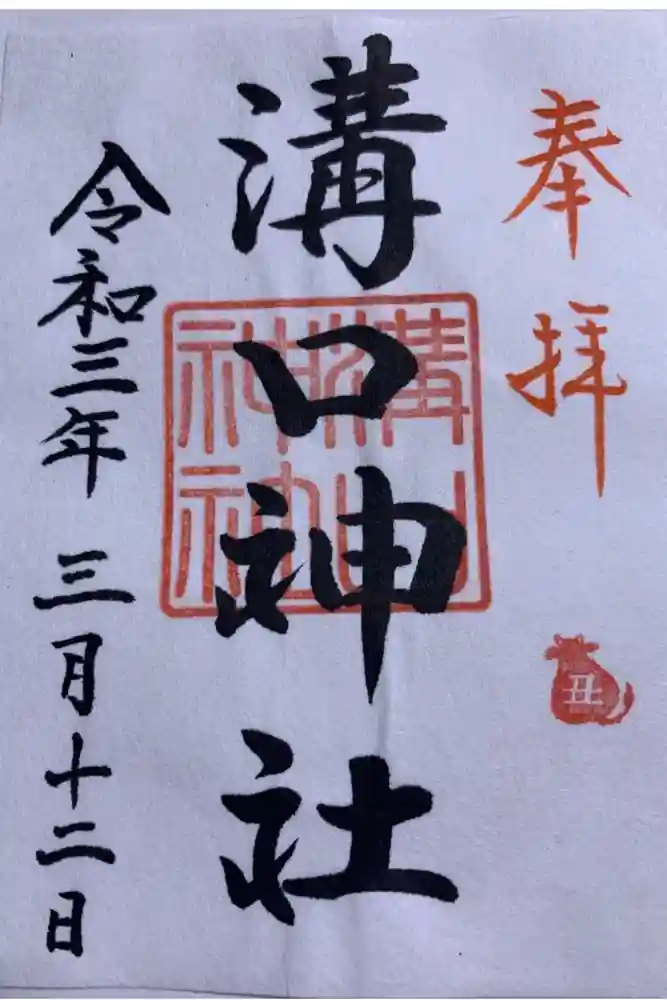 奉拝
溝口神社
溝口
神社
令和三年 三月十二日
丑